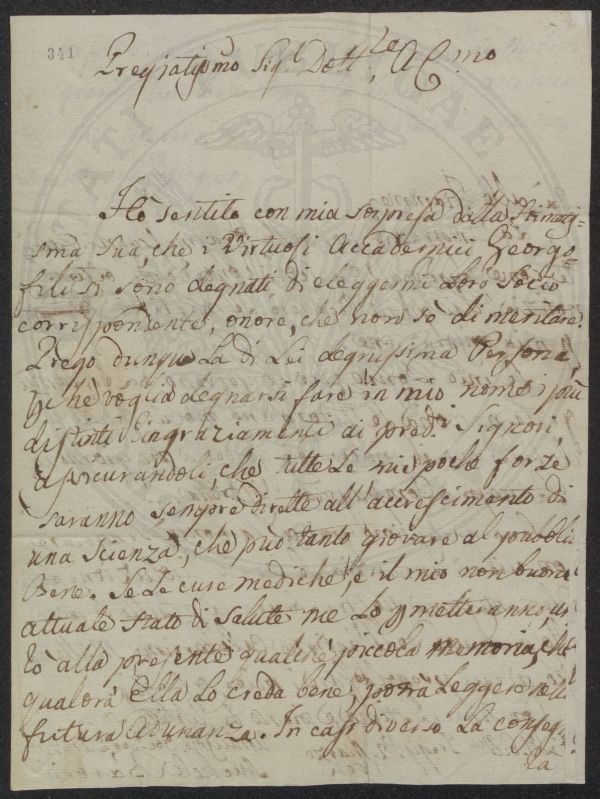 341
Pregiatissmo Sigr Dottre Cmo
Ho sentito con mia sorpresa dalla Stimatis-
sma Sua, che i Virtuosi Accademici Georgo-
fili si sono degnati di eleggermi Loro Socio
corrispondente, onore, che non sò di meritare.
Prego dunque La di Lei degnissima Persona,
pchè voglia degnarsi fare in mio nome i più
distinti Ringraziamenti ai predi Signori,
assicurandoli, che tutte Le mie poche forze
saranno sempre dirette all' accrescimento di
una scienza, che può tanto giovare al pubblico
Bene. Se Le cure mediche, e il mio non buono
attuale stato di salute me Lo pmetteranno,
alla presente qualche piccola memoria, che
qualora Ella Lo creda bene, potrà Leggere nell
futura Adunanza. In caso diverso La conseg-
la